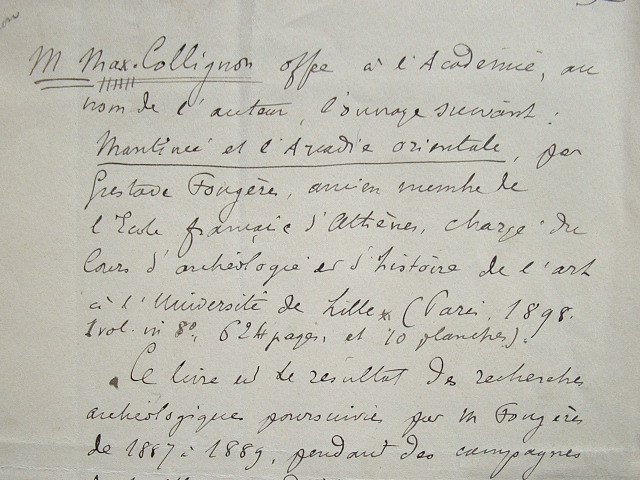 M Max. Collignon offre à l'Académie, au
nom de l'auteur, l'ouvrage suivant :
Mantinée et l'Arcadie orientale, par
Gustave Fougères, ancien membre de
l'Ecole française d'Athènes, chargé du
Cours d'archéologie et d'histoire de l'art
à l'Université de Lille (Paris, 1898.
1 vol. in 8°, 624 pages, et 10 planches).
Ce livre est le résultat des recherches
archéologiques poursuivies par M Fougères
de 1887 à 1889, pendant des campagnes